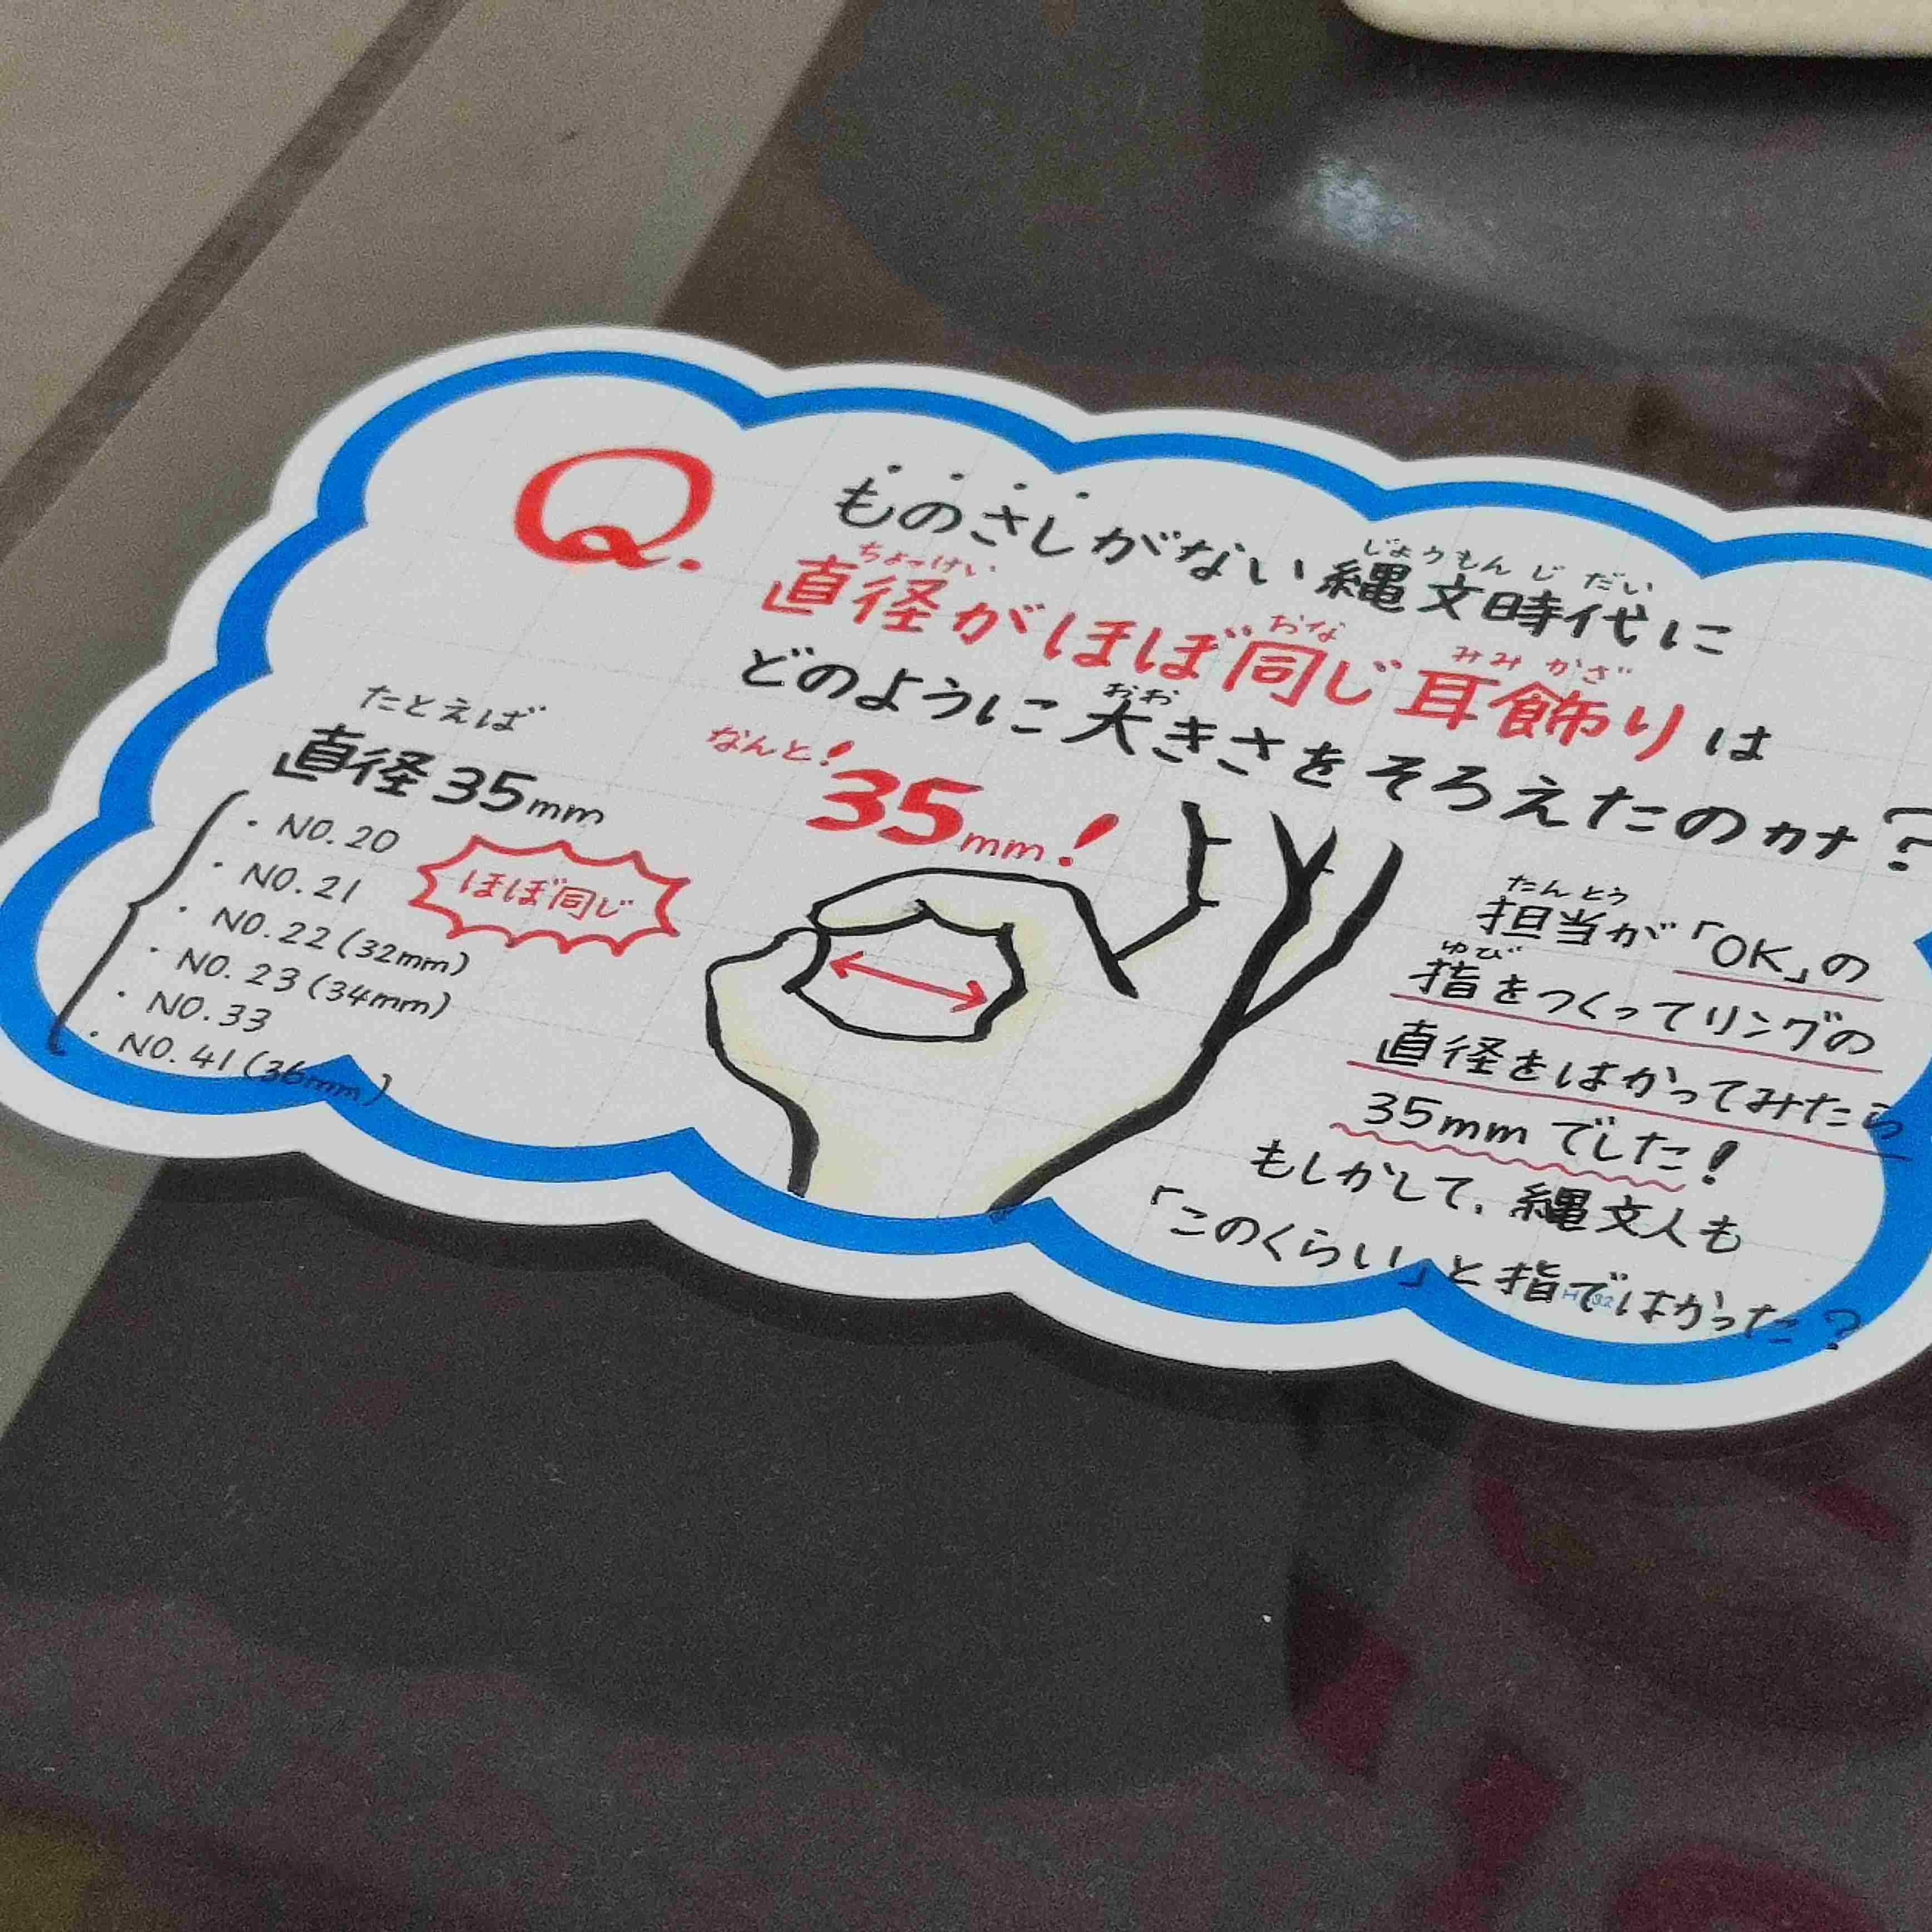 Q.
ものさしがない縄文時代に
じょうもんじだい
直径がほぼ同じ耳飾りは
ちょっけい おな みみかざ
どのように大きさをそろえたのカナ?
おお
たとえば
直径35mm
・NO.20
・NO.21
・NO.22(32mm)
・NO.23(34mm)
・NO.33
・NO.41(36mm)
ほぼ同じ
なんと!
35mm!
たんとう
担当が「OK」の
ゆび
指をつくってリングの
直径をはかってみたら
35mmでした!
もしかして、縄文人も
「このくらい」と指ではかった?